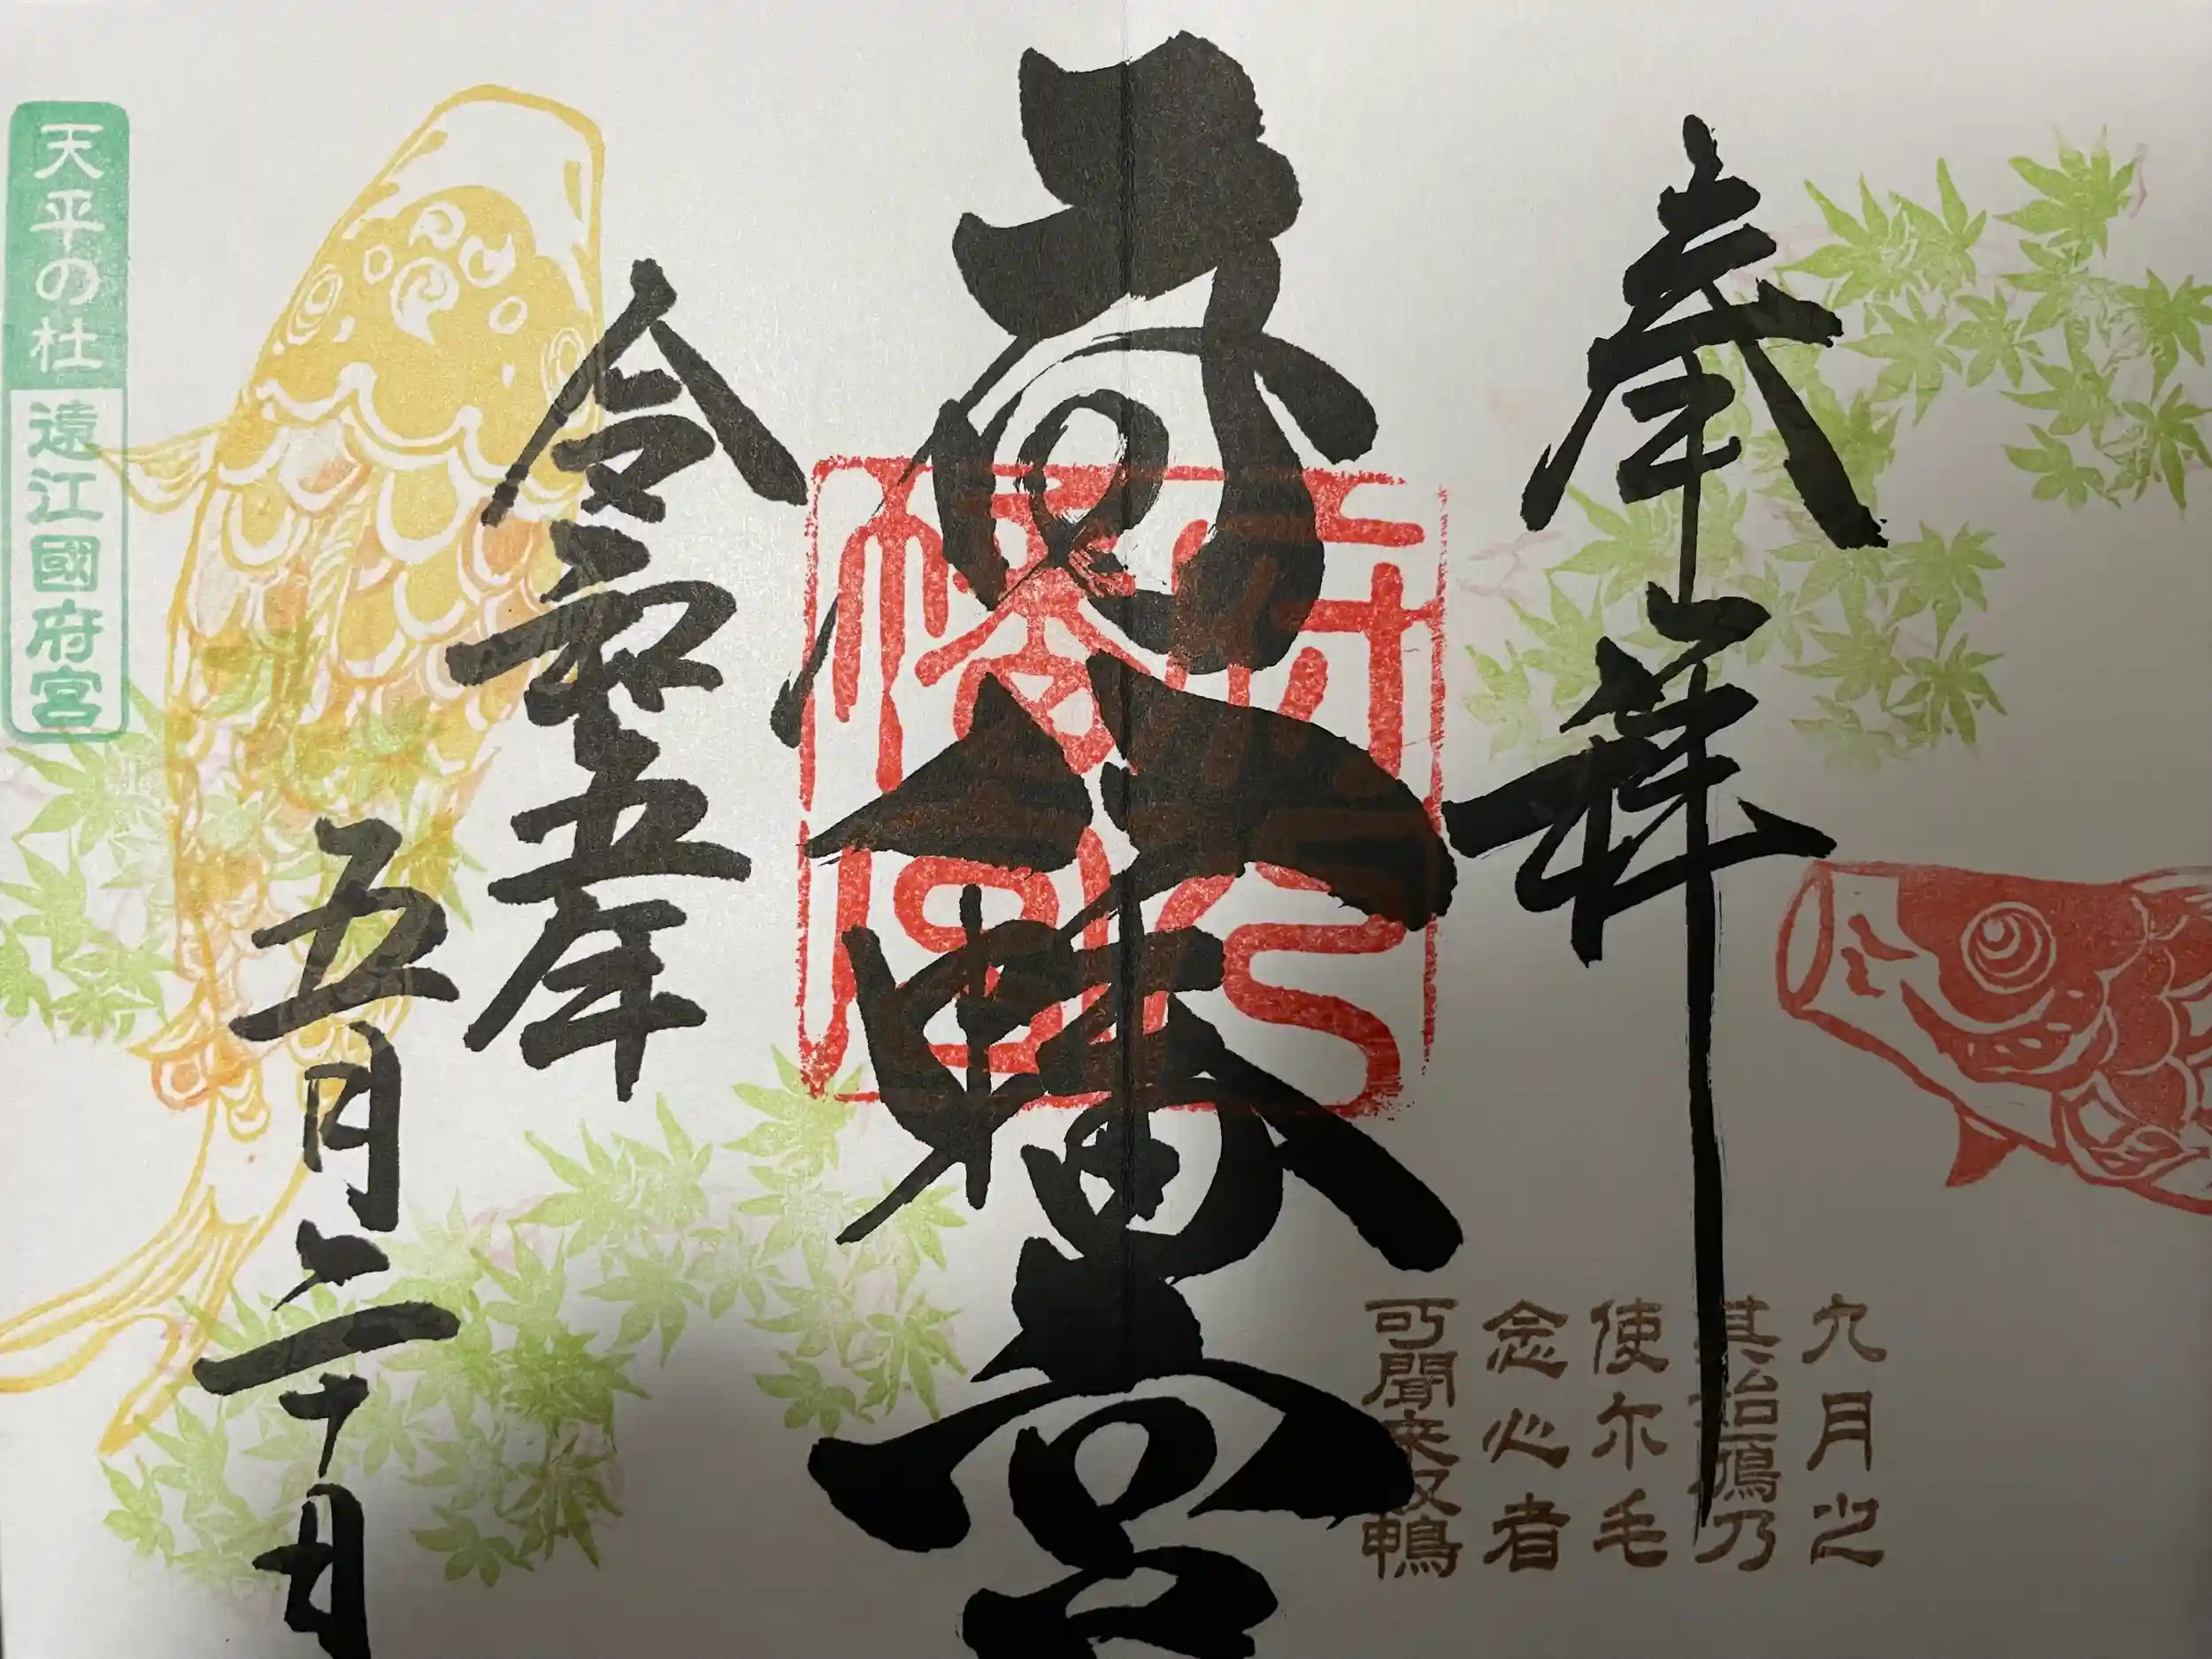 奉拝
九月之
其始鴈乃
使尓毛
念心者
可聞来奴鴨
府八幡宮
令和五年
五月二十日
天平の杜 遠江國府宮